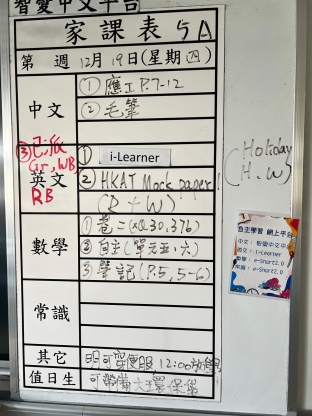 智愛中文平台
家課表 5A
第 週 12月19日(星期四)
中文
① 應工 P.7-12
② 毛筆
英文
③ 已派
Gr, WB
RB
① i-Learner
② HKAT Mock paper 1
(R + W)
(Holiday
H.W)
數學
① 卷二(×Q.30,37b)
② 自主(單元五、六)
③ 筆記(P.5, 5-6)
常識
其它
明可穿便服, 12:00放學
值日生
可帶大環保袋
自主學習 網上平台
中文: 智愛中文平台
英文: i-Learner
數學: e-Smart2.0
常識: e-Smart2.0